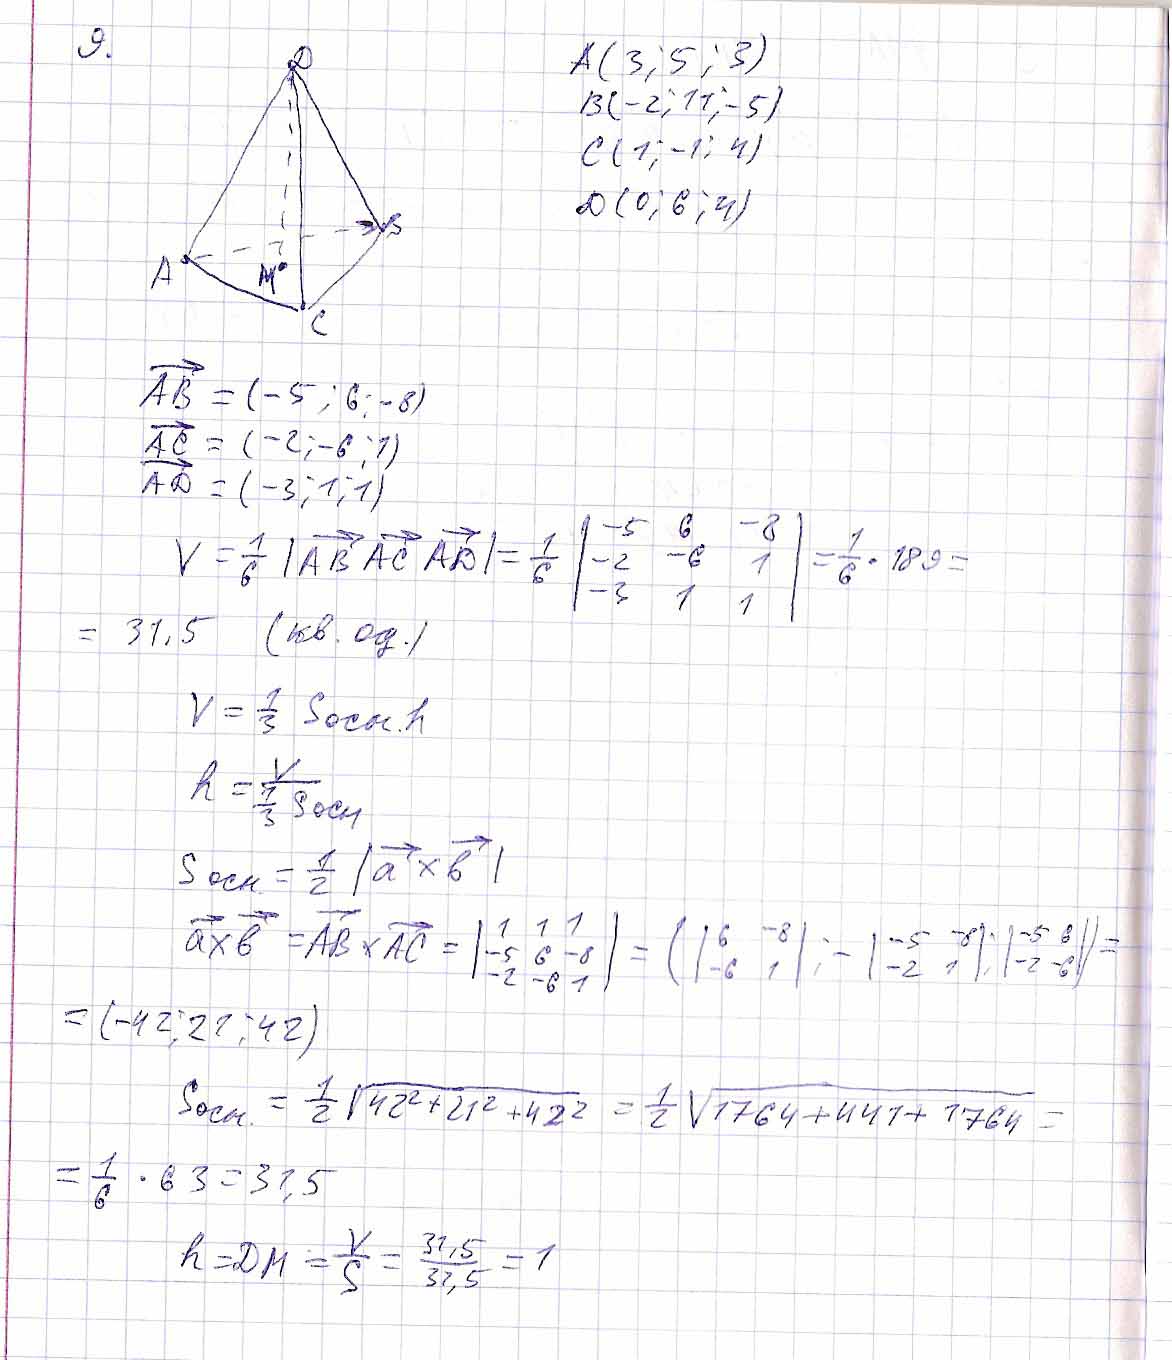 9.
A(3;5;3)
B(-2;11;-5)
C(1;-1;4)
D(0;6;4)
D
A
B
M
C
AB = (-5;6;-8)
AC = (-2;-6;1)
AD = (-3;1;1)
V = 1/6 |AB AC AD| = 1/6 |-5 6 -8; -2 -6 1; -3 1 1| = 1/6 · 189 =
= 31,5 (кв. од.)
V = 1/3 Sосн. h
h = V / (1/3 Sосн)
Sосн. = 1/2 |a × b|
a×b = AB × AC = |1 1 1; -5 6 -8; -2 -6 1| = (|6 -8; -6 1|; -|-5 -8; -2 1|; |-5 6; -2 -6|) =
= (-42;21;42)
Sосн. = 1/2 √(42² + 21² + 42²) = 1/2 √(1764 + 441 + 1764) =
= 1/6 · 63 = 31,5
h = DM = V/S = 31,5/31,5 = 1